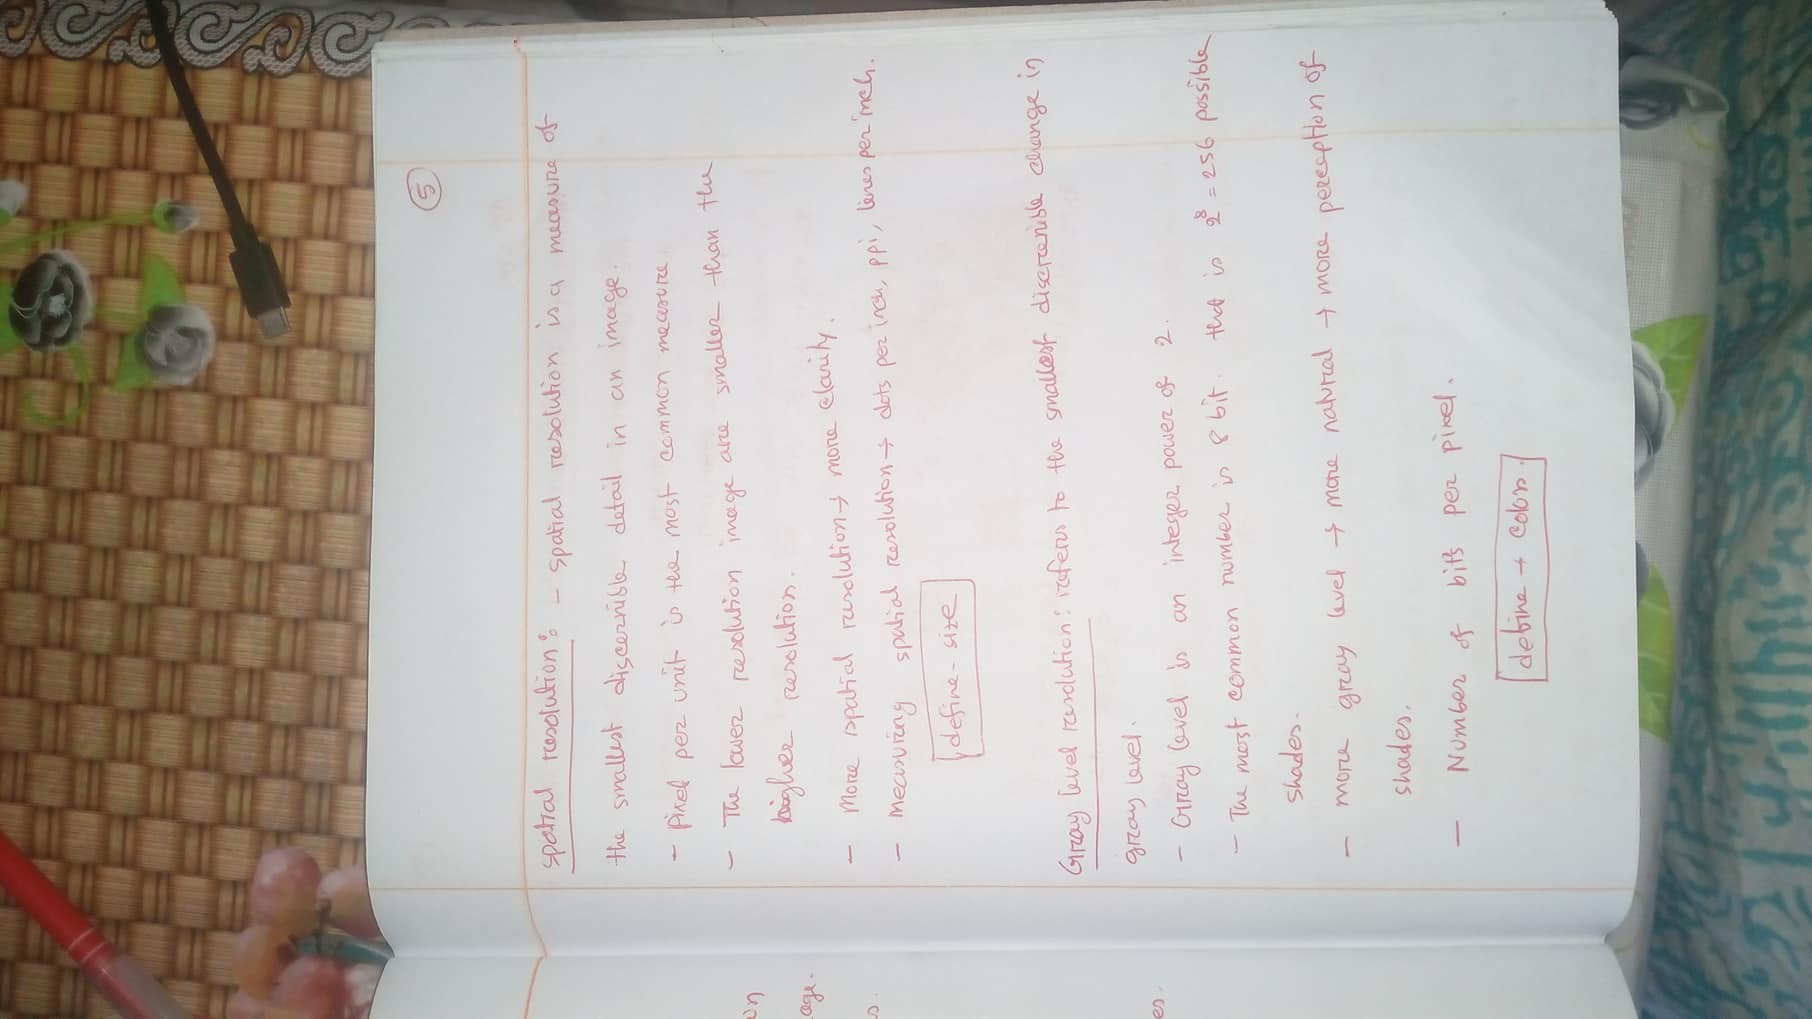 5
spatial resolution: - spatial resolution is a measure of
the smallest discernible detail in an image.
- Pixel per unit is the most common measure.
- The lower resolution image are smaller than the
higher resolution.
- More spatial resolution → more clarity.
- measuring spatial resolution → dots per inch, ppi, lines per inch.
define - size
Gray level resolution: refers to the smallest discrenible change in
gray level.
- Gray level is an integer power of 2.
- The most common number is 8 bit. that is 2^8 = 256 possible
shades.
- more gray level → more natural → more perception of
shades.
- Number of bits per pixel.
define → colors.
age.
s.
es.